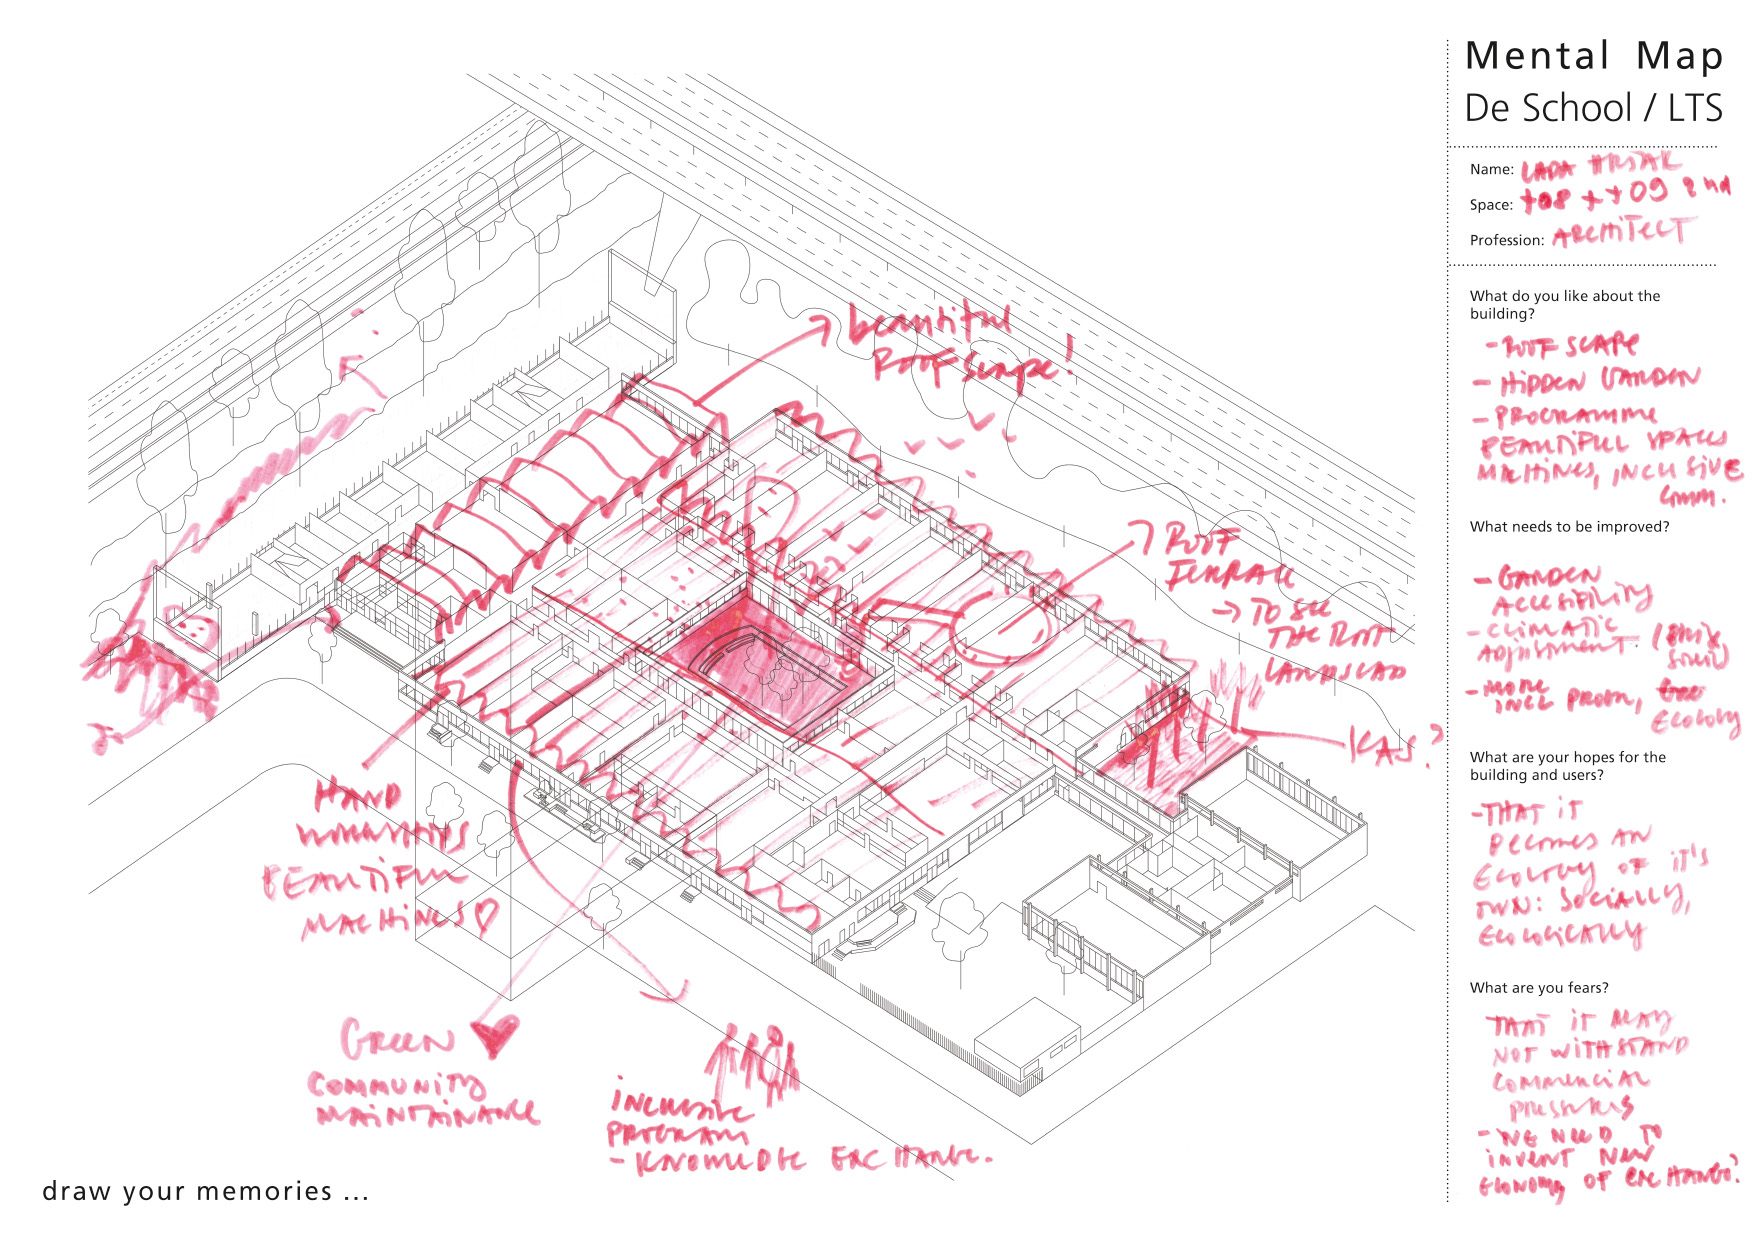 Mental Map
De School / LTS
Name: LADA HRŠAK
Space: t08 + t09 2nd
Profession: ARCHiTECT
What do you like about the
building?
- ROOF SCAPE
- HiDDEN GARDEN
- PROGRAMME
BEAUTiFUL SPACES
MACHiNES, iNCLUSiVE
Comm.
What needs to be improved?
- GARDEN
ACCESiBiLiTY
- CLiMATiC
ADjUSTMENT
- MORE
iNCL PROGR,
ECOLOGY
What are your hopes for the
building and users?
- THAT iT
BECOMES AN
ECOLOGY OF iT'S
OWN: SOCiALLY,
ECOLOGiCALLY
What are you fears?
THAT iT MAY
NOT WiTHSTAND
COMMERCiAL
PRESSURES
- WE NEED TO
iNVENT NEW
ECONOMY OF EXCHANGE?
beautiful
ROOF Scape!
ROOF
TERRACE
→ TO SEE
THE ROOF
LANDSCAP
KAS?
HAND
WORKSHOPS
BEAUTiFUL
MACHiNES
GREEN
COMMUNiTY
MAiNTAiNANCE
iNCLUSiVE
PROGRAM
- KNOWLEDGE EXCHANGE.
draw your memories ...